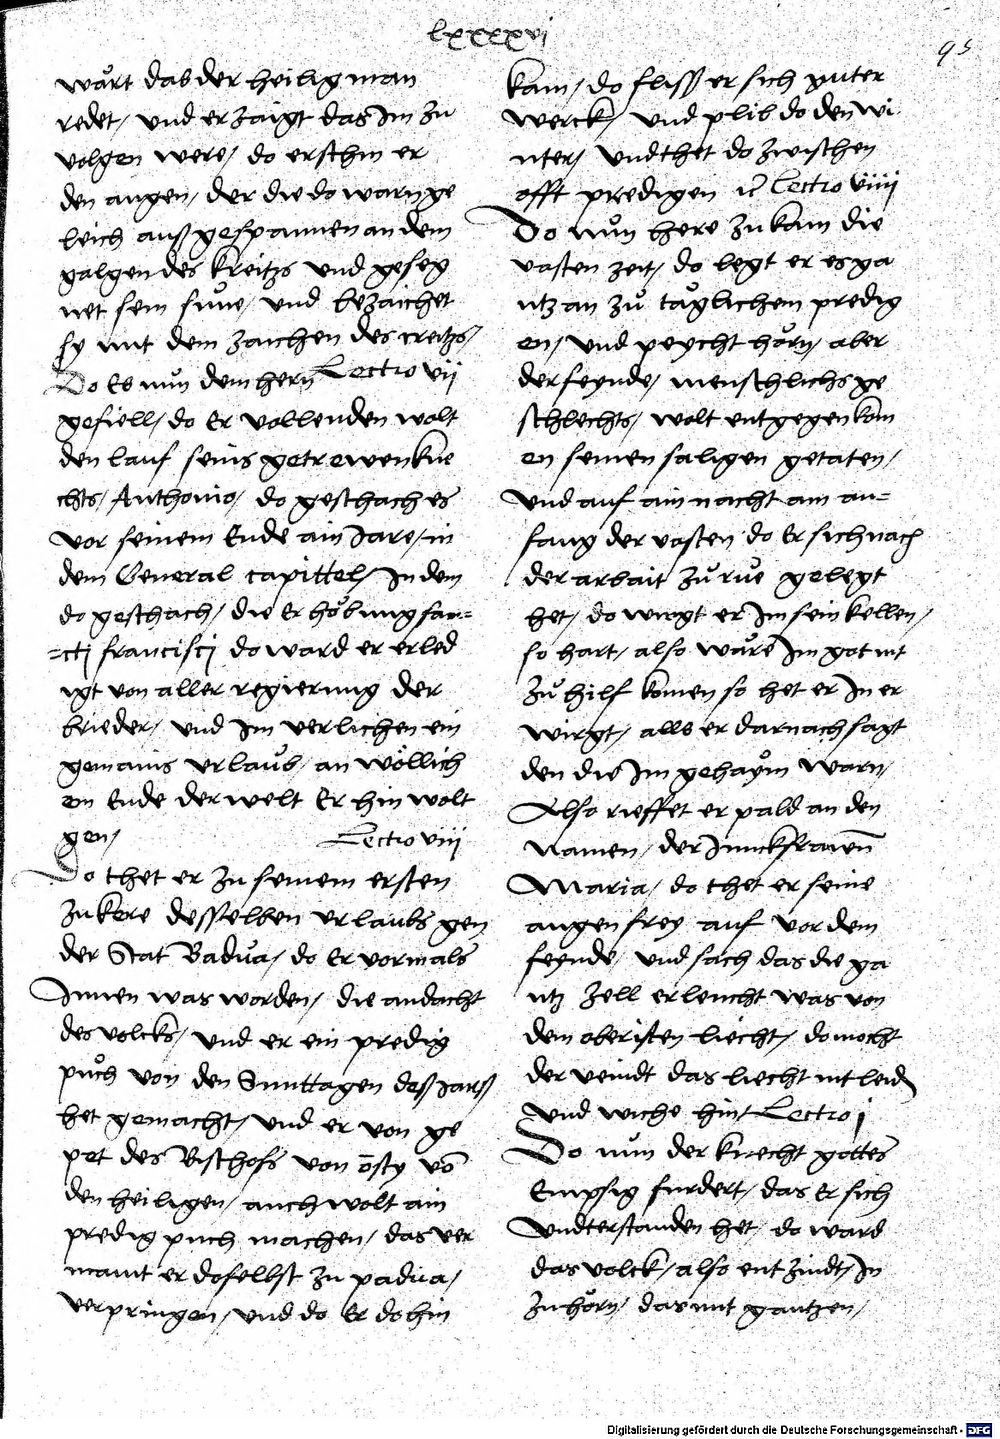 lxxxxvi
95
wart das der heilig man
redet / und er zaigt das Im zu
volgen were / do erschin er
den augen / der die do warn ge
leich auß gespannen an dem
galgen des kreitzs und geseg
net sein süne / und bezaichet
sy mit dem zaichen des creitzs /
Do Es nun dem hern Lectio vij
gefiell / do Er vollenden wolt
den lauf seins getrewen kne
chts / Anthonio / do geschach es
vor seinem Ende ain Jare / in
dem General capittel / In dem
do geschach / die Erhöbung san=
=cti francisci do ward er erled
igt von aller regierung der
brieder / und Im verlichen ein
gemains urlaub / an wöllich
en Ende der welt Er hin wolt
gen / Lectio viij
Do thet er zu seinem ersten
zukere desselben urlaubs gen
der Stat Badua / do Er vormals
Innen was worden / die andacht
des volcks / und er ein predig
puch von den Sunttagen deß Jarß
het gemacht / und er von ge
pet des Bischofs von ōsty vō
den heiligen / auch wolt ain
predig puch machen / das ver
maint er doselbst zu padua /
verpringen / und do Er do hin
kam / do fliss er sich guter
werck / und plib do den wi
nter / und thet do zwischen
offt predigen Lectio viiij
Do nun here zu kam die
vasten zeit / do legt er es ga
ntz an zu täglichem predig
en / und peycht hörn / aber
der feynde / menschlichs ge
schlechts / wolt entgegen kom
en seinen saligen getaten /
und auf ain nacht am an=
fang der vasten do Er sich nach
der arbait zu rue gelegt
het / do wirgt er Im sein kellen /
so hart / also wäre Im got nit
zu hilf komen so het er In er
wirgt / alls er darnach sagt
den die Im gehaym warn /
Also rieffet er pald an den
namen / der Junckfrawen
Maria / do thet er seine
augen frey auf vor dem
feynde / und sach das die ga
ntz zell erleucht was von
dem obersten liecht / do mocht
der veindt das liecht nit leidn
und wiche hin Lectio j
Do nun der knecht gottes
Empsig furdert / das Er sich
undterstanden het / do ward
das volck / also entzindt / In
zu hörn / das mit gantzen /
Digitalisierung gefördert durch die Deutsche Forschungsgemeinschaft - DFG